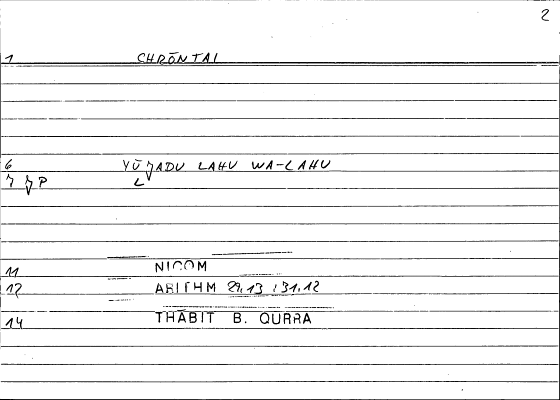 2
1 CHRŌNTAI
6 YŪǦADU LAHU WA-LAHU
7 P L
11 NICOM
12 ARITHM 29,13 ; 31,12
14 THĀBIT B. QURRA